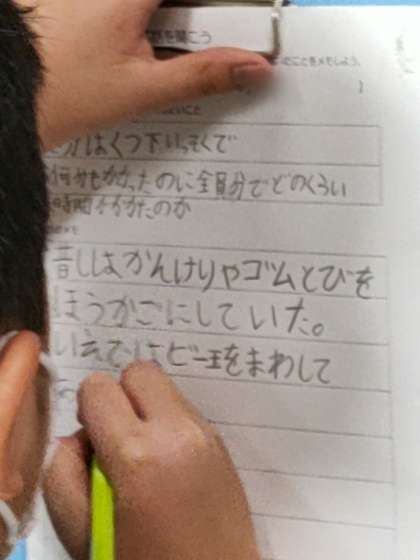 を聞こう
ことをメモしよう。
分はくつ下いっそくで
何分もかかったのに全員分でどのくらい
時間かかたのか
メモ
昔しはかんけりやゴムとびを
ほうかごにしていた。
いえではビー玉をまわして